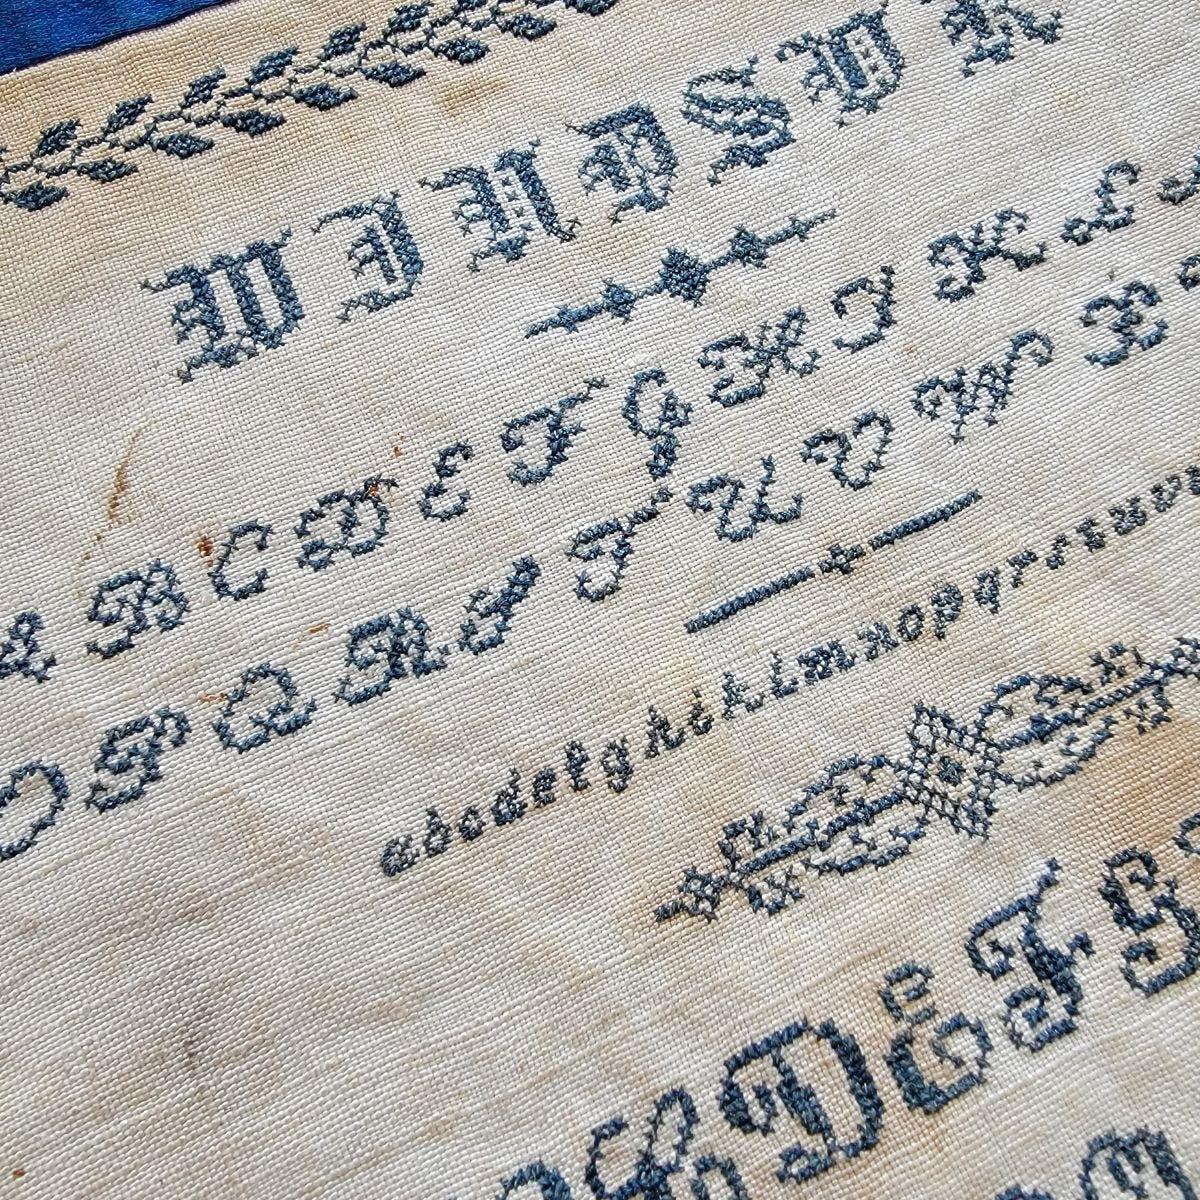 W I N D S U R
A B C D E F G H I K L
O P Q R S T U V W X
a b c d e f g h i k l m n o p q r s t u v
D E F G